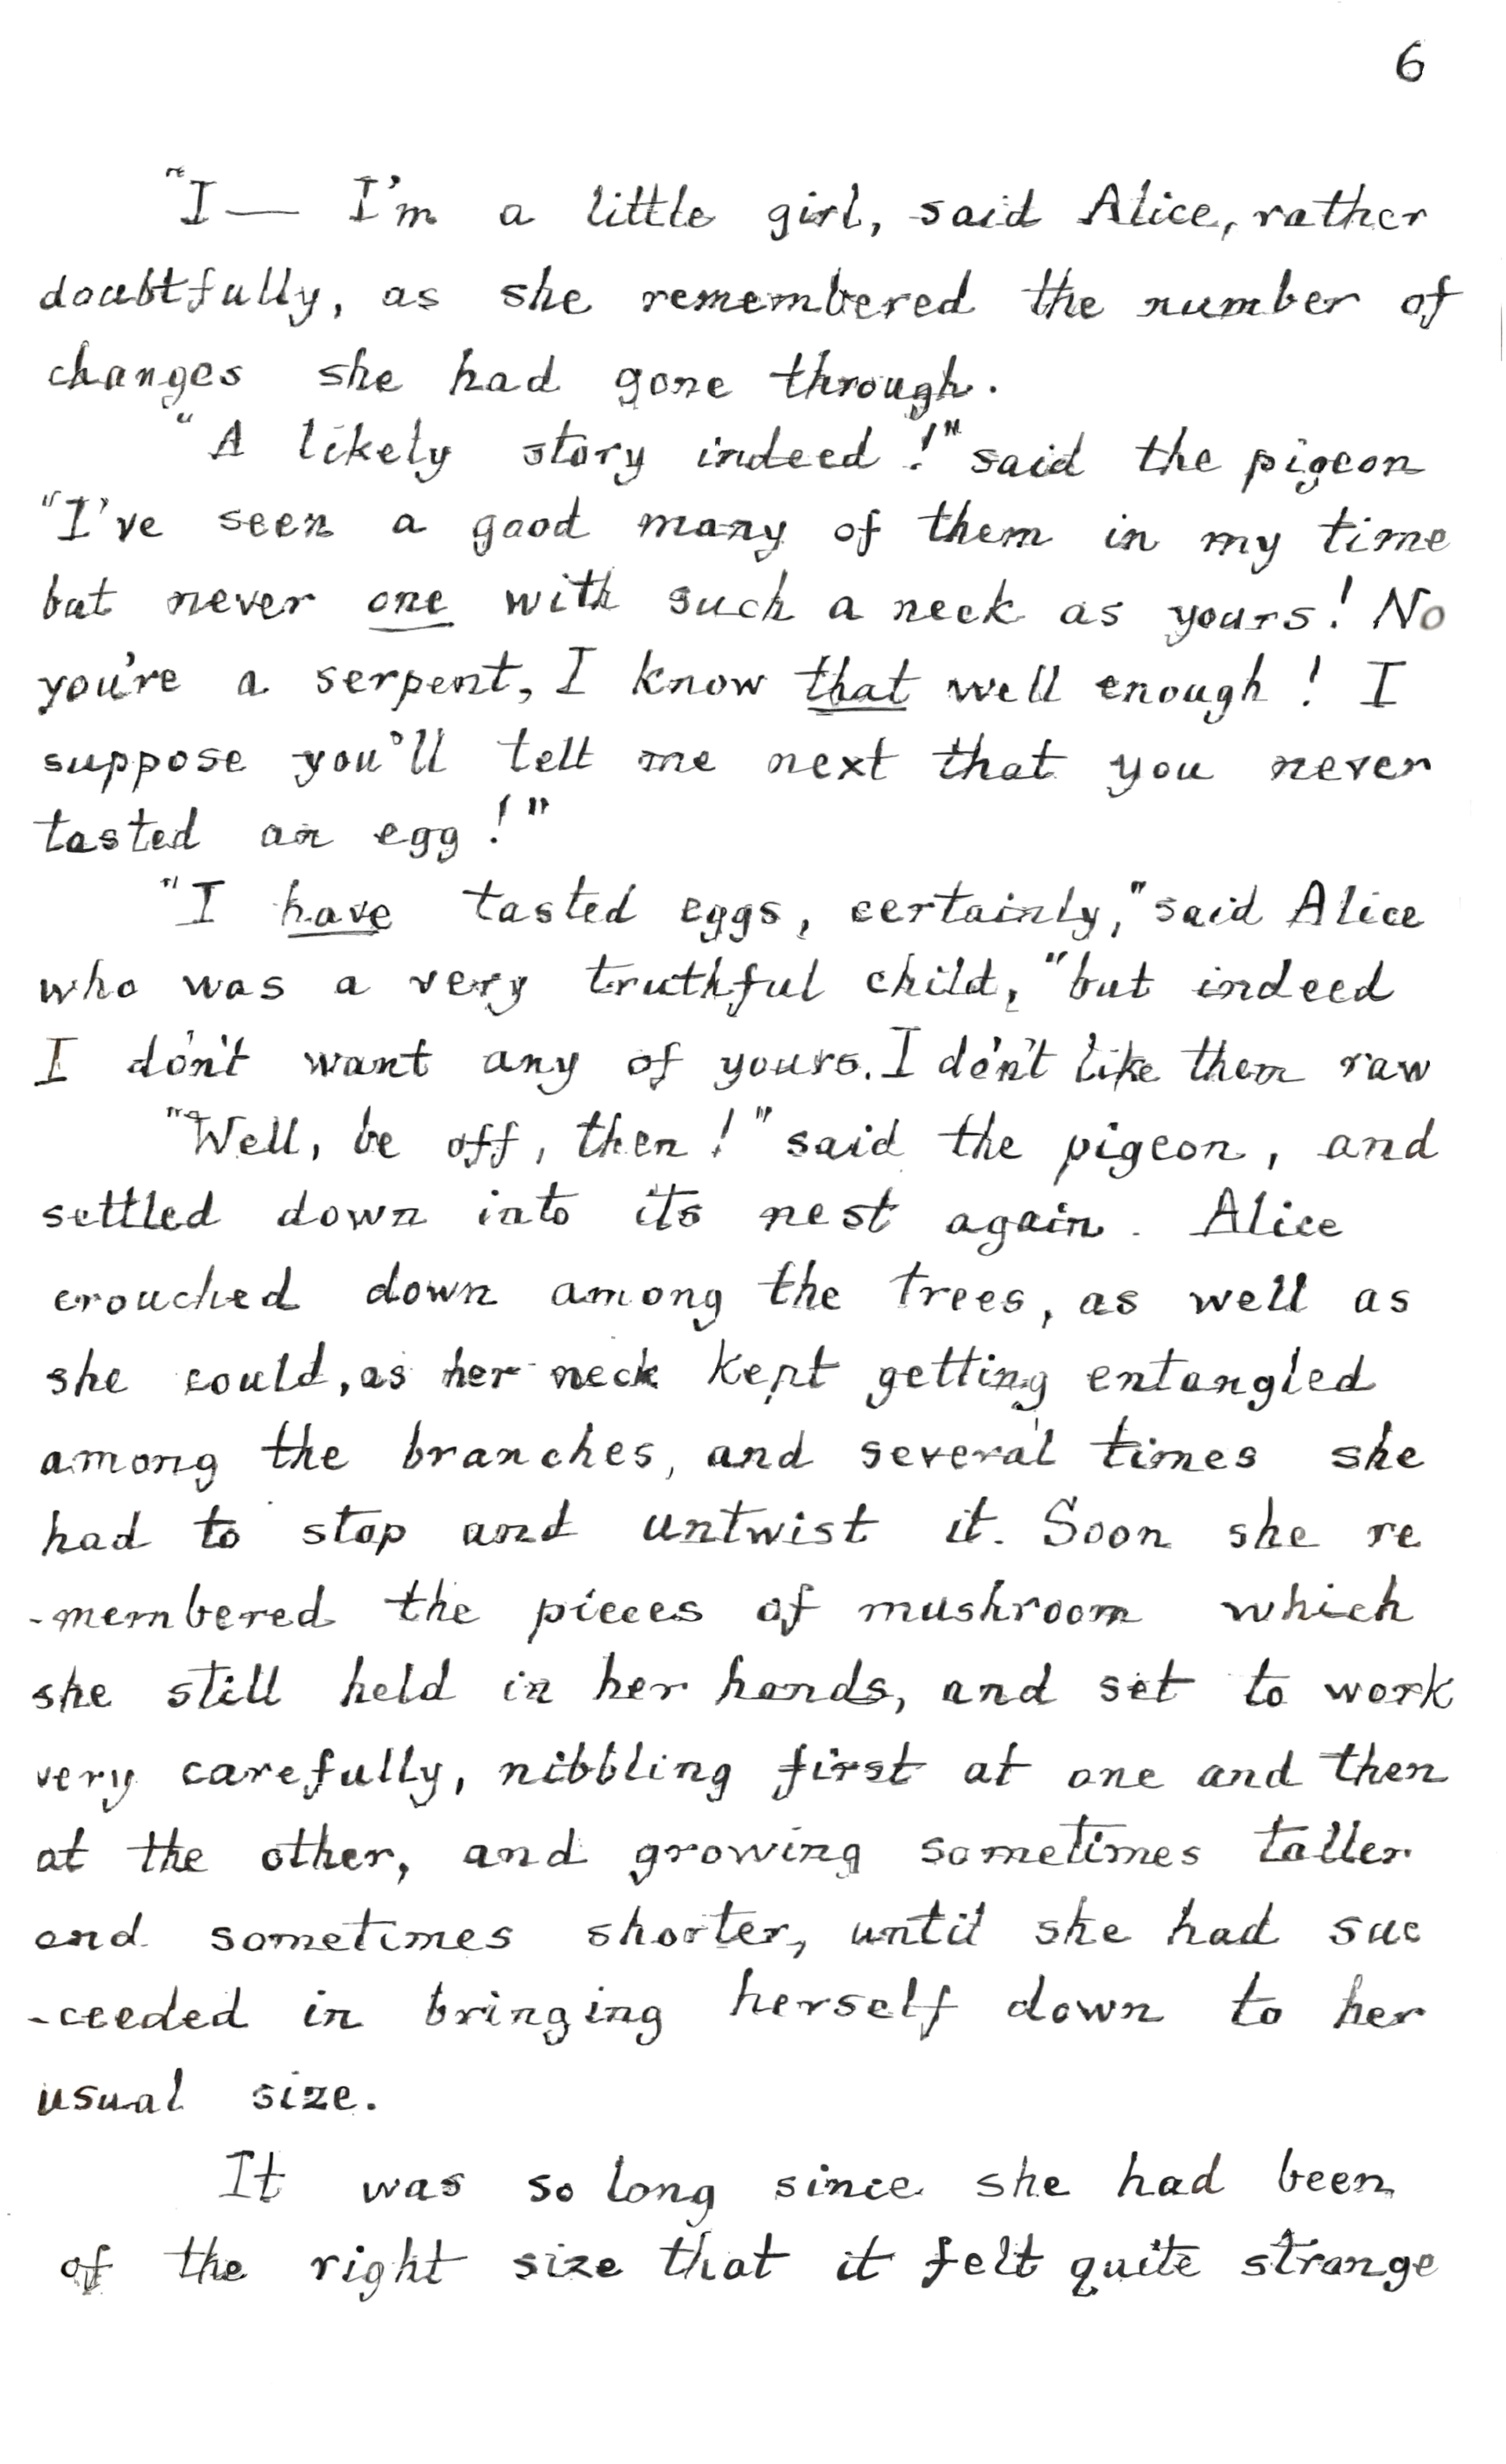 6
"I— I'm a little girl, said Alice, rather
doubtfully, as she remembered the number of
changes she had gone through.
"A likely story indeed!" said the pigeon
"I've seen a good many of them in my time
but never one with such a neck as yours! No
you're a serpent, I know that well enough! I
suppose you'll tell me next that you never
tasted an egg!"
"I have tasted eggs, certainly," said Alice
who was a very truthful child, "but indeed
I don't want any of yours. I don't like them raw
"Well, be off, then!" said the pigeon, and
settled down into its nest again. Alice
crouched down among the trees, as well as
she could, as her neck kept getting entangled
among the branches, and several times she
had to stop and untwist it. Soon she re
-membered the pieces of mushroom which
she still held in her hands, and set to work
very carefully, nibbling first at one and then
at the other, and growing sometimes taller
and sometimes shorter, until she had suc
-ceeded in bringing herself down to her
usual size.
It was so long since she had been
of the right size that it felt quite strange